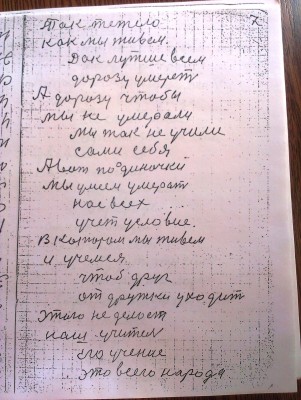 Так тежело
как мы живем.
Dак лутше всем
дорозу умерет
А дорозу чтобы
мы не умерали
мы так не учили
сами себя
А вот по одиночки
мы умеем умерат
нас всех
учет условие.
В котором мы живем
и учемся
чтоб друг
от дружки уходит
этого не делост
наш учител
его учение
это всего народа